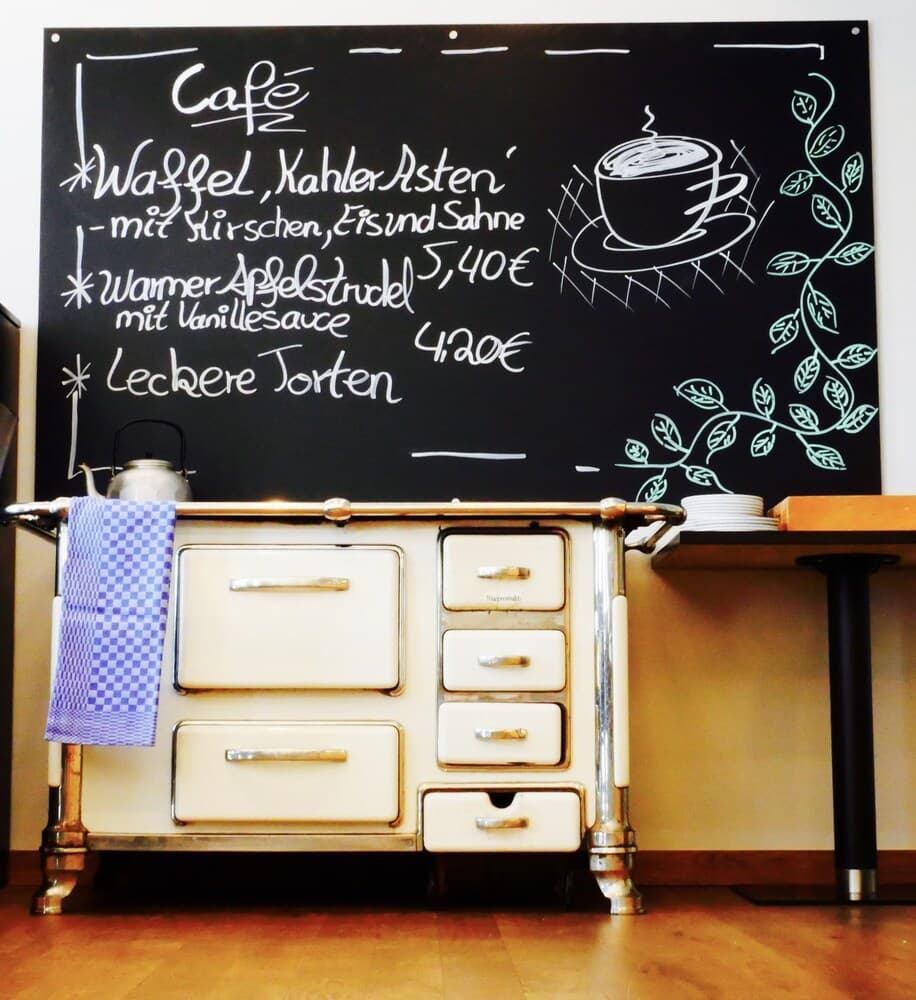 Café
* Waffel ‚Kahler Asten'
- mit Kirschen, Eis und Sahne
5,40€
* Warmer Apfelstrudel
mit Vanillesauce
4.20€
* Leckere Torten